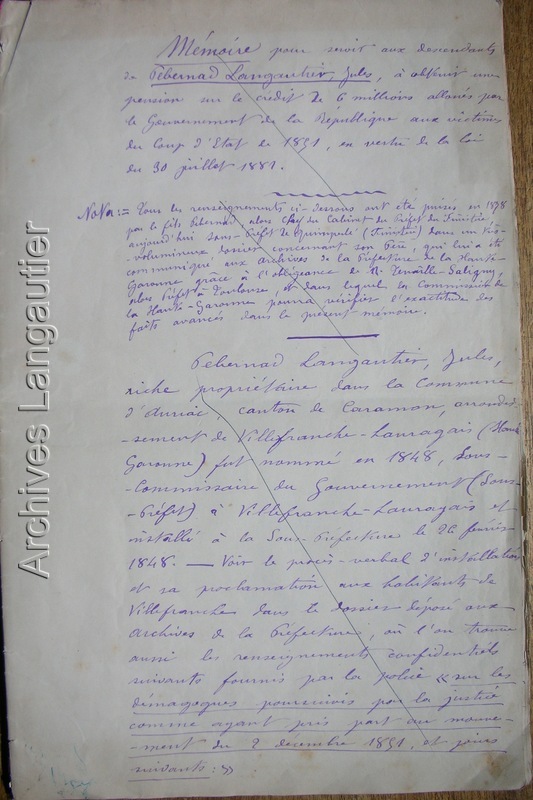 Mémoire pour servir aux descendants
de Pébernad Langautier, Jules, à obtenir une
pension sur le crédit de 6 millions alloués par
le Gouvernement de la République aux victimes
du Coup d'Etat de 1851, en vertu de la loi
du 30 juillet 1881.
Nota := Tous les renseignements ci-dessous ont été puisés en 1878
par le fils Pébernad, alors Chef du Cabinet du Préfet du Finistère,
aujourd'hui Sous-Préfet de Quimperlé (Finistère) dans un très-
volumineux dossier concernant son Père, qui lui a été
communiqué aux archives de la Préfecture de la Haute-
Garonne grâce à l'obligeance de Mr Tenaille-Saligny,
alors Préfet à Toulouse, et dans lequel la Commission de
la Haute-Garonne pourra vérifier l'exactitude des
faits avancés dans le présent mémoire.
Pébernad Langautier, Jules,
riche propriétaire dans la Commune
d'Auriac canton de Caraman, arrondis-
-sement de Villefranche-Lauragais (Haute
Garonne) fut nommé en 1848, Sous-
-Commissaire du Gouvernement (Sous-
-Préfet) à Villefranche-Lauragais et
installé à la Sous-Préfecture le 26 février
1848. — Voir le procès-verbal d'installation
et sa proclamation aux habitants de
Villefranche dans le dossier déposé aux
archives de la Préfecture, où l'on trouve
aussi les renseignements confidentiels
suivants fournis par la police « sur les
démagogues poursuivis par la justice
comme ayant pris part au mouve-
-ment du 2 décembre 1851, et jours
suivants : »
Archives Langautier